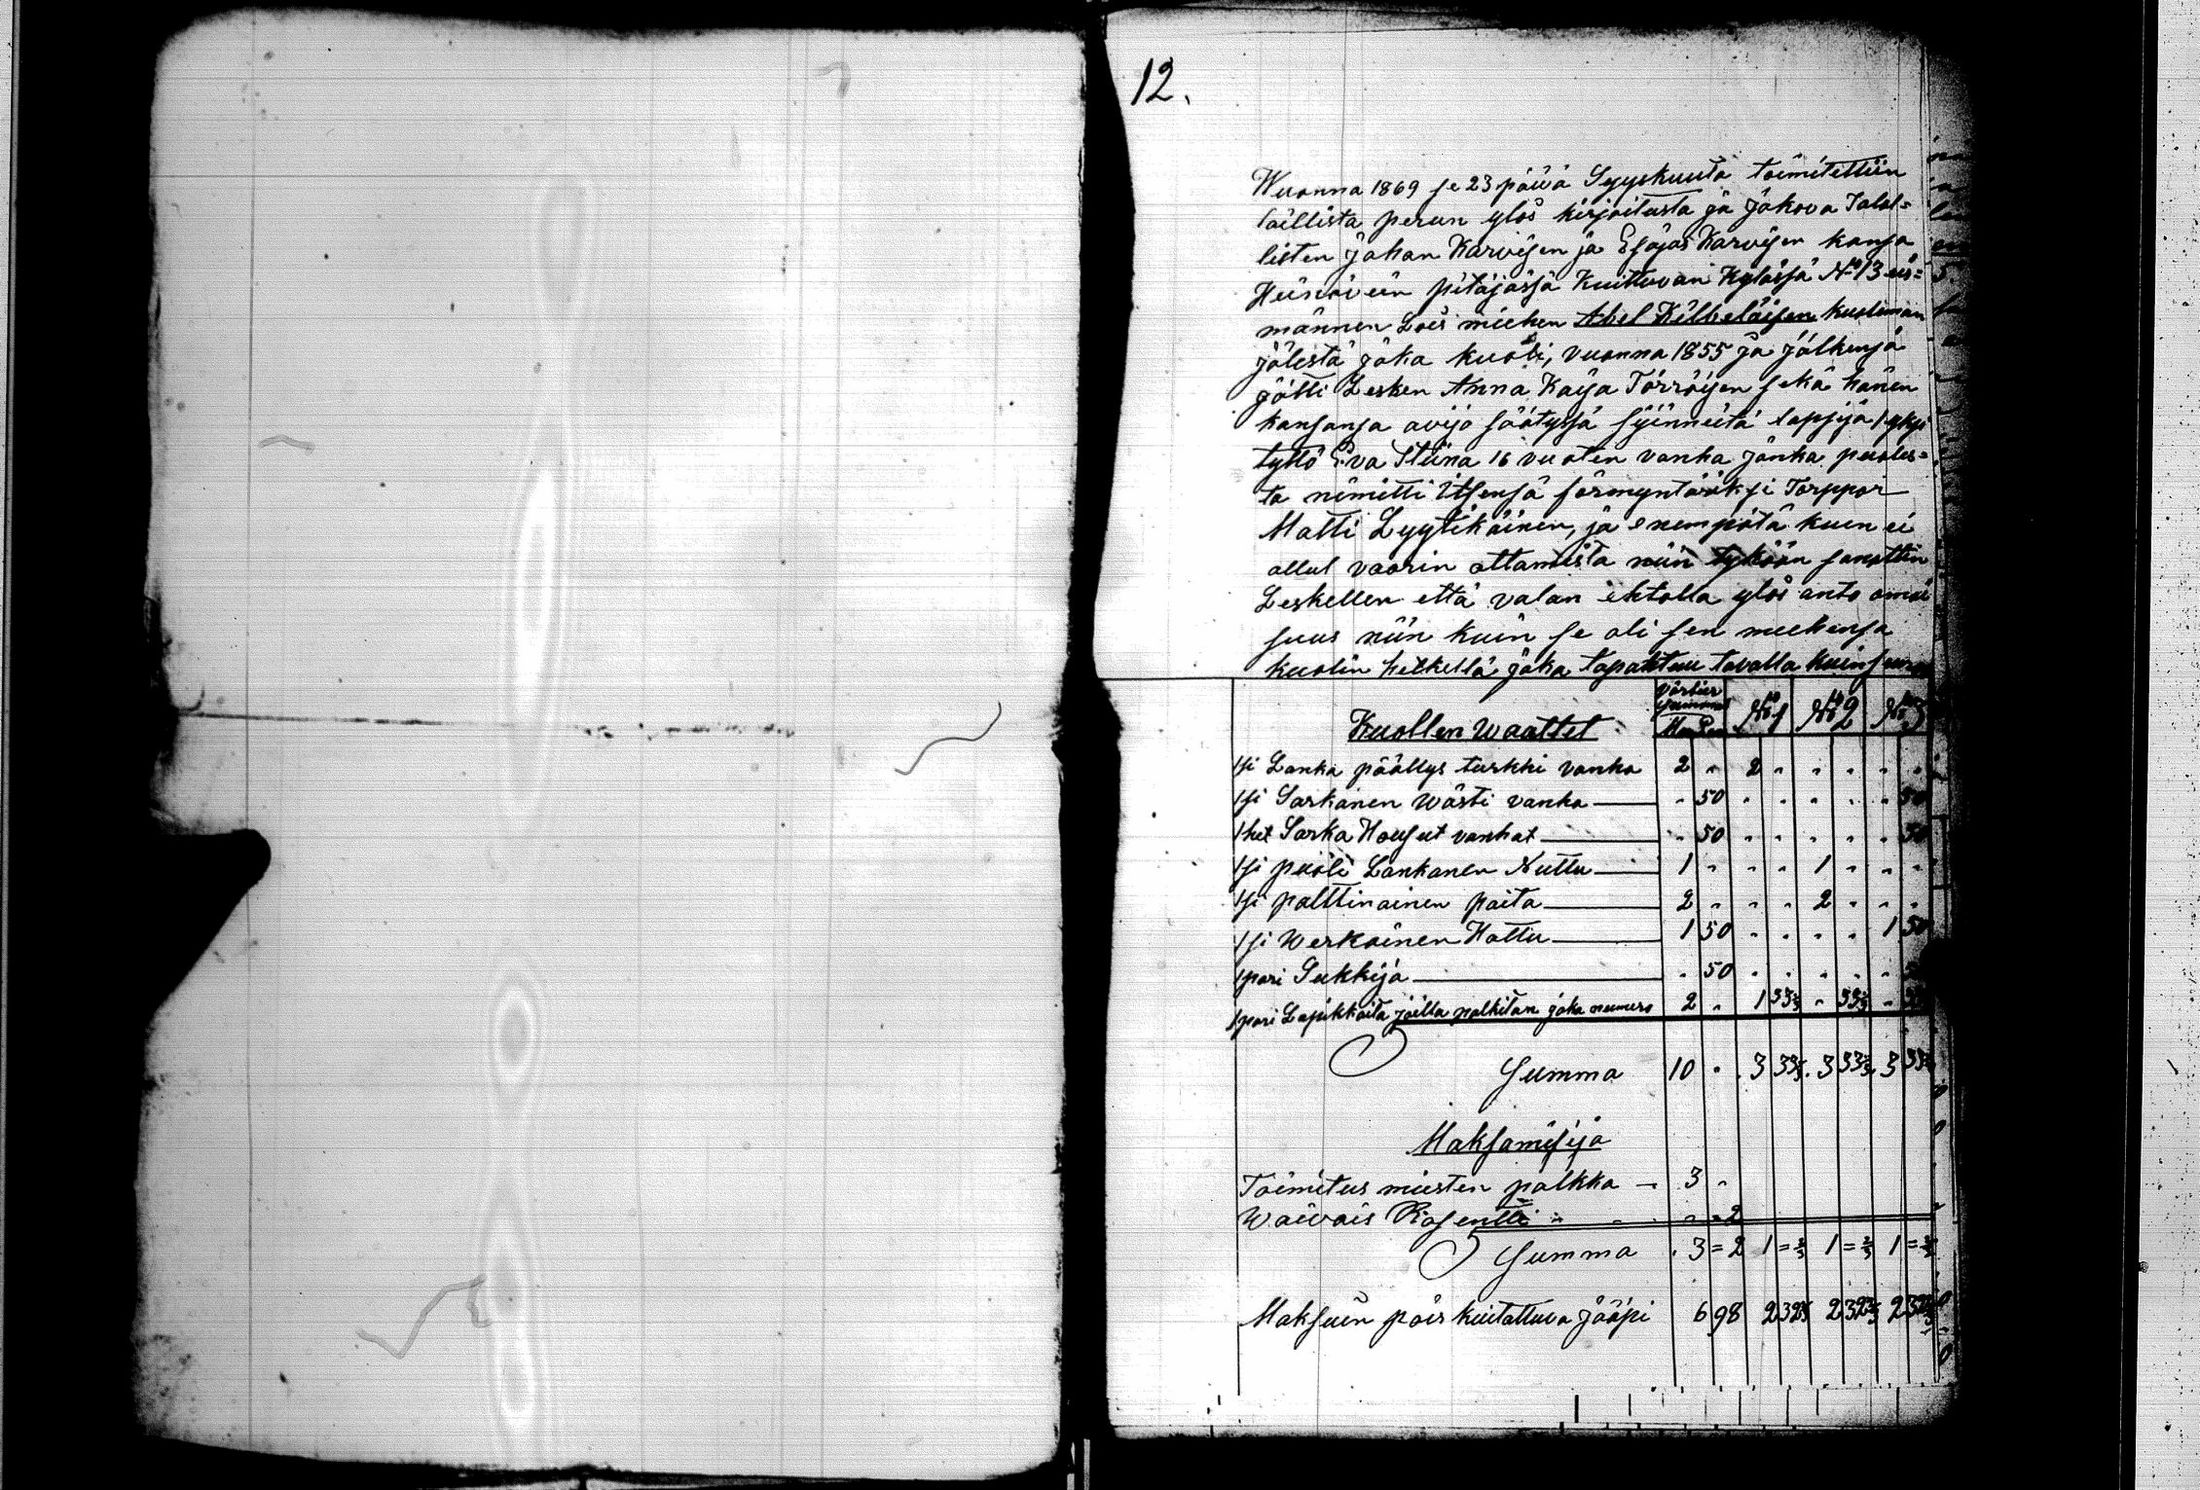 12.
Wuonna 1869 se 23 päivä Syyskuuta toimitettiin
laillista perun ylös kirjoitusta ja Jakova Talol=
listen Johan Karvisen ja Esajas Karvisen kansa
Heinävein pitäjässä Kuittuvan Kylässä No 13 eis=
männen Lois miehen Abel Kilbeläisen kuoleman
jälestä joka kuoli, vuonna 1855 ja jälkensä
jätti Lesken Anna Kaija Törröisen sekä hänen
kansansa avijo säätyssä siinneitä lapsija 1 yksi
tyttö Eva Stiina 16 vuoten vanha jonka puoles=
ta nimitti Itsensä förmyntäriksi Torppar
Matti Lyytikäinen, ja enempätä kuin ei
ollut vaarin ottamista niin tykään sanottiin
Leskellen että valan ehtolla ylös anto omai
suus niin kuin se oli sen miehensä
kuolin hetkellä joka tapahtuu tavalla kuin seura
Kuollen waattet
Mar Pen No 1 No 2 No 3
1si Lanka päällys turkki vanha 2 " 2 " " " " "
1si Sarkanen wästi vanha " 50 " " " " " 50
1het Sarka Housut vanhat " 50 " " " " " 50
1si puoli Lankanen Nuttu 1 " " " 1 " " "
1si palttinainen paita 2 " " " 2 " " "
1si Werkainen Hattu 1 50 " " " " 1 50
1pari Sukkija " 50 " " " " "
1pari Lapikkaita joilla palkitan joka numero 2 " 1 33⅓ " 33⅓ "
Summa 10 " 3 33⅓ 3 33⅓ 3 33⅓
Maksamisija
Toimitus miesten palkka 3 "
Waivais Prosentti " " 2
Summa 3 = 2 1 = ⅔ 1 = ⅔ 1 = ⅔
Maksuin pois kuitattuva Jääpi 6 98 2 32⅔ 2 32⅔ 2 32⅔